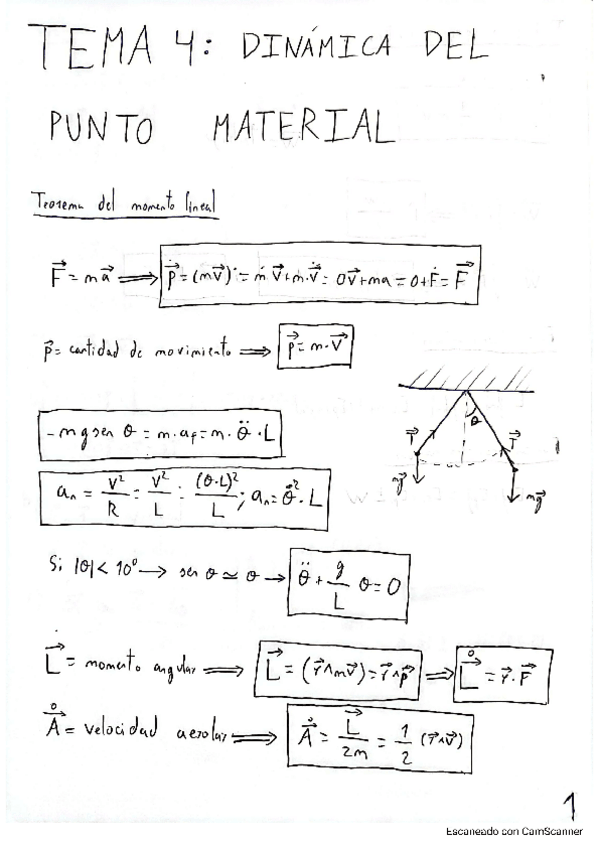 TEMA 4: DINÁMICA DEL
PUNTO MATERIAL
Teorema del momento lineal
F⃗ = ma⃗ ⟹ ṗ⃗ = (mv⃗)˙ = ṁ v⃗ + m·v̇⃗ = 0v⃗ + ma = 0 + F = F⃗
p⃗ = cantidad de movimiento ⟹ p⃗ = m·v⃗
-mg sen θ = m·a_t = m·θ̈·L
a_n = v²/R = v²/L = (θ·L)²/L ; a_n = θ̇²·L
θ
T⃗
T⃗
mg⃗
mg⃗
Si |θ| < 10° → sen θ ≃ θ → θ̈ + g/L θ = 0
L⃗ = momento angular ⟹ L⃗ = (r⃗∧mv⃗) = r⃗∧p⃗ ⟹ L̇⃗ = r⃗·F⃗
Ȧ⃗ = velocidad aerolar ⟹ Ȧ⃗ = L⃗/2m = 1/2 (r⃗∧v⃗)
1
Escaneado con CamScanner